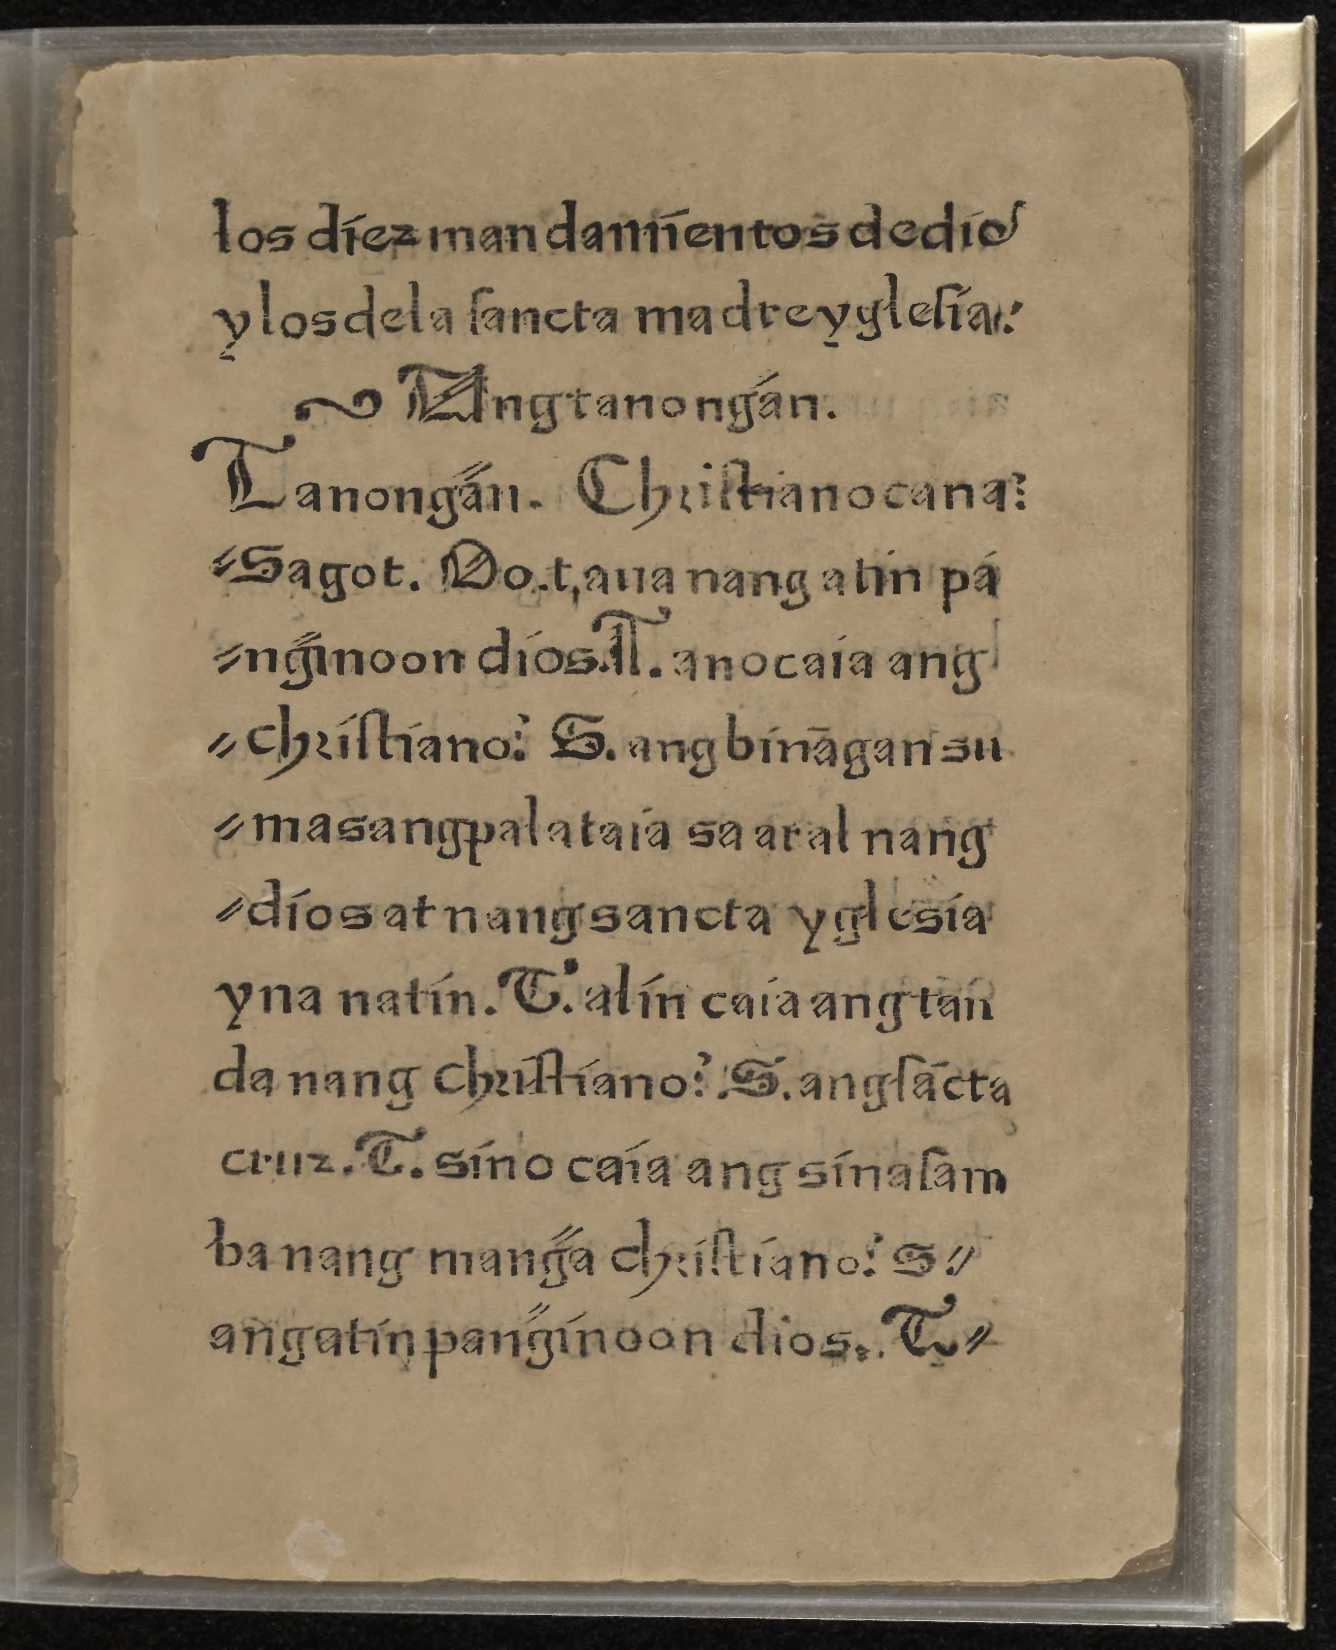 los díez mandamíentos de díos
y los de la ſancta madre yglesía.
Ang tanong̃án.
Tanong̃án. Chriſtiano cana?
Sagot. Oo. t, aua nang atín pá
ng̃ínoon díos. T. ano caía ang
chríſtíano? S. ang bínãgan su
masangpalataía sa aral nang
díos at nang sancta yglesía
yna natín. T. alín caía ang tan
da nang chríſtíano? S. ang ſãcta
cruz. T. síno caía ang sínaſam
ba nang mang̃a chríſtíano? S.
ang atín pang̃ínoon dios. T.